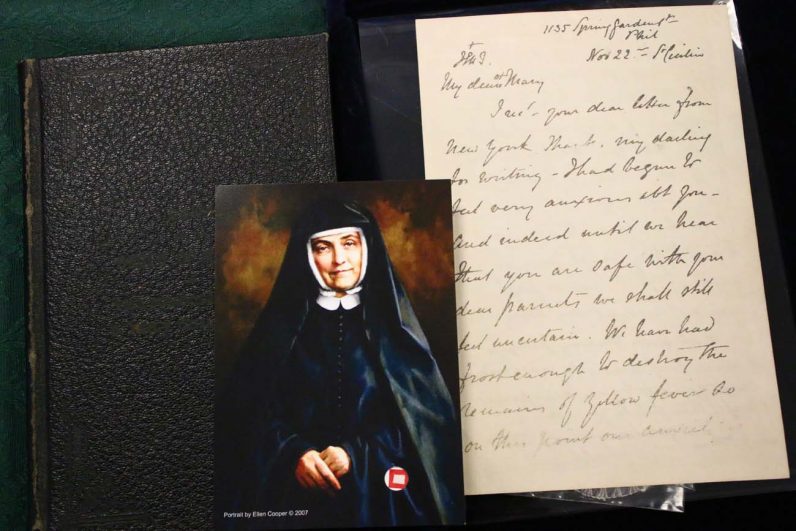 1135 Spring Garden St
Phil
Nov 22nd St Cecilia
My dearest Mary
I rec'd your dear letter from
New York thanks, my darling
for writing - I had begun to
feel very anxious abt you -
And indeed until we hear
that you are safe with your
dear parents we shall still
feel uncertain. We have had
frost enough to destroy the
remains of yellow fever so
on this point our
Portrait by Ellen Cooper © 2007